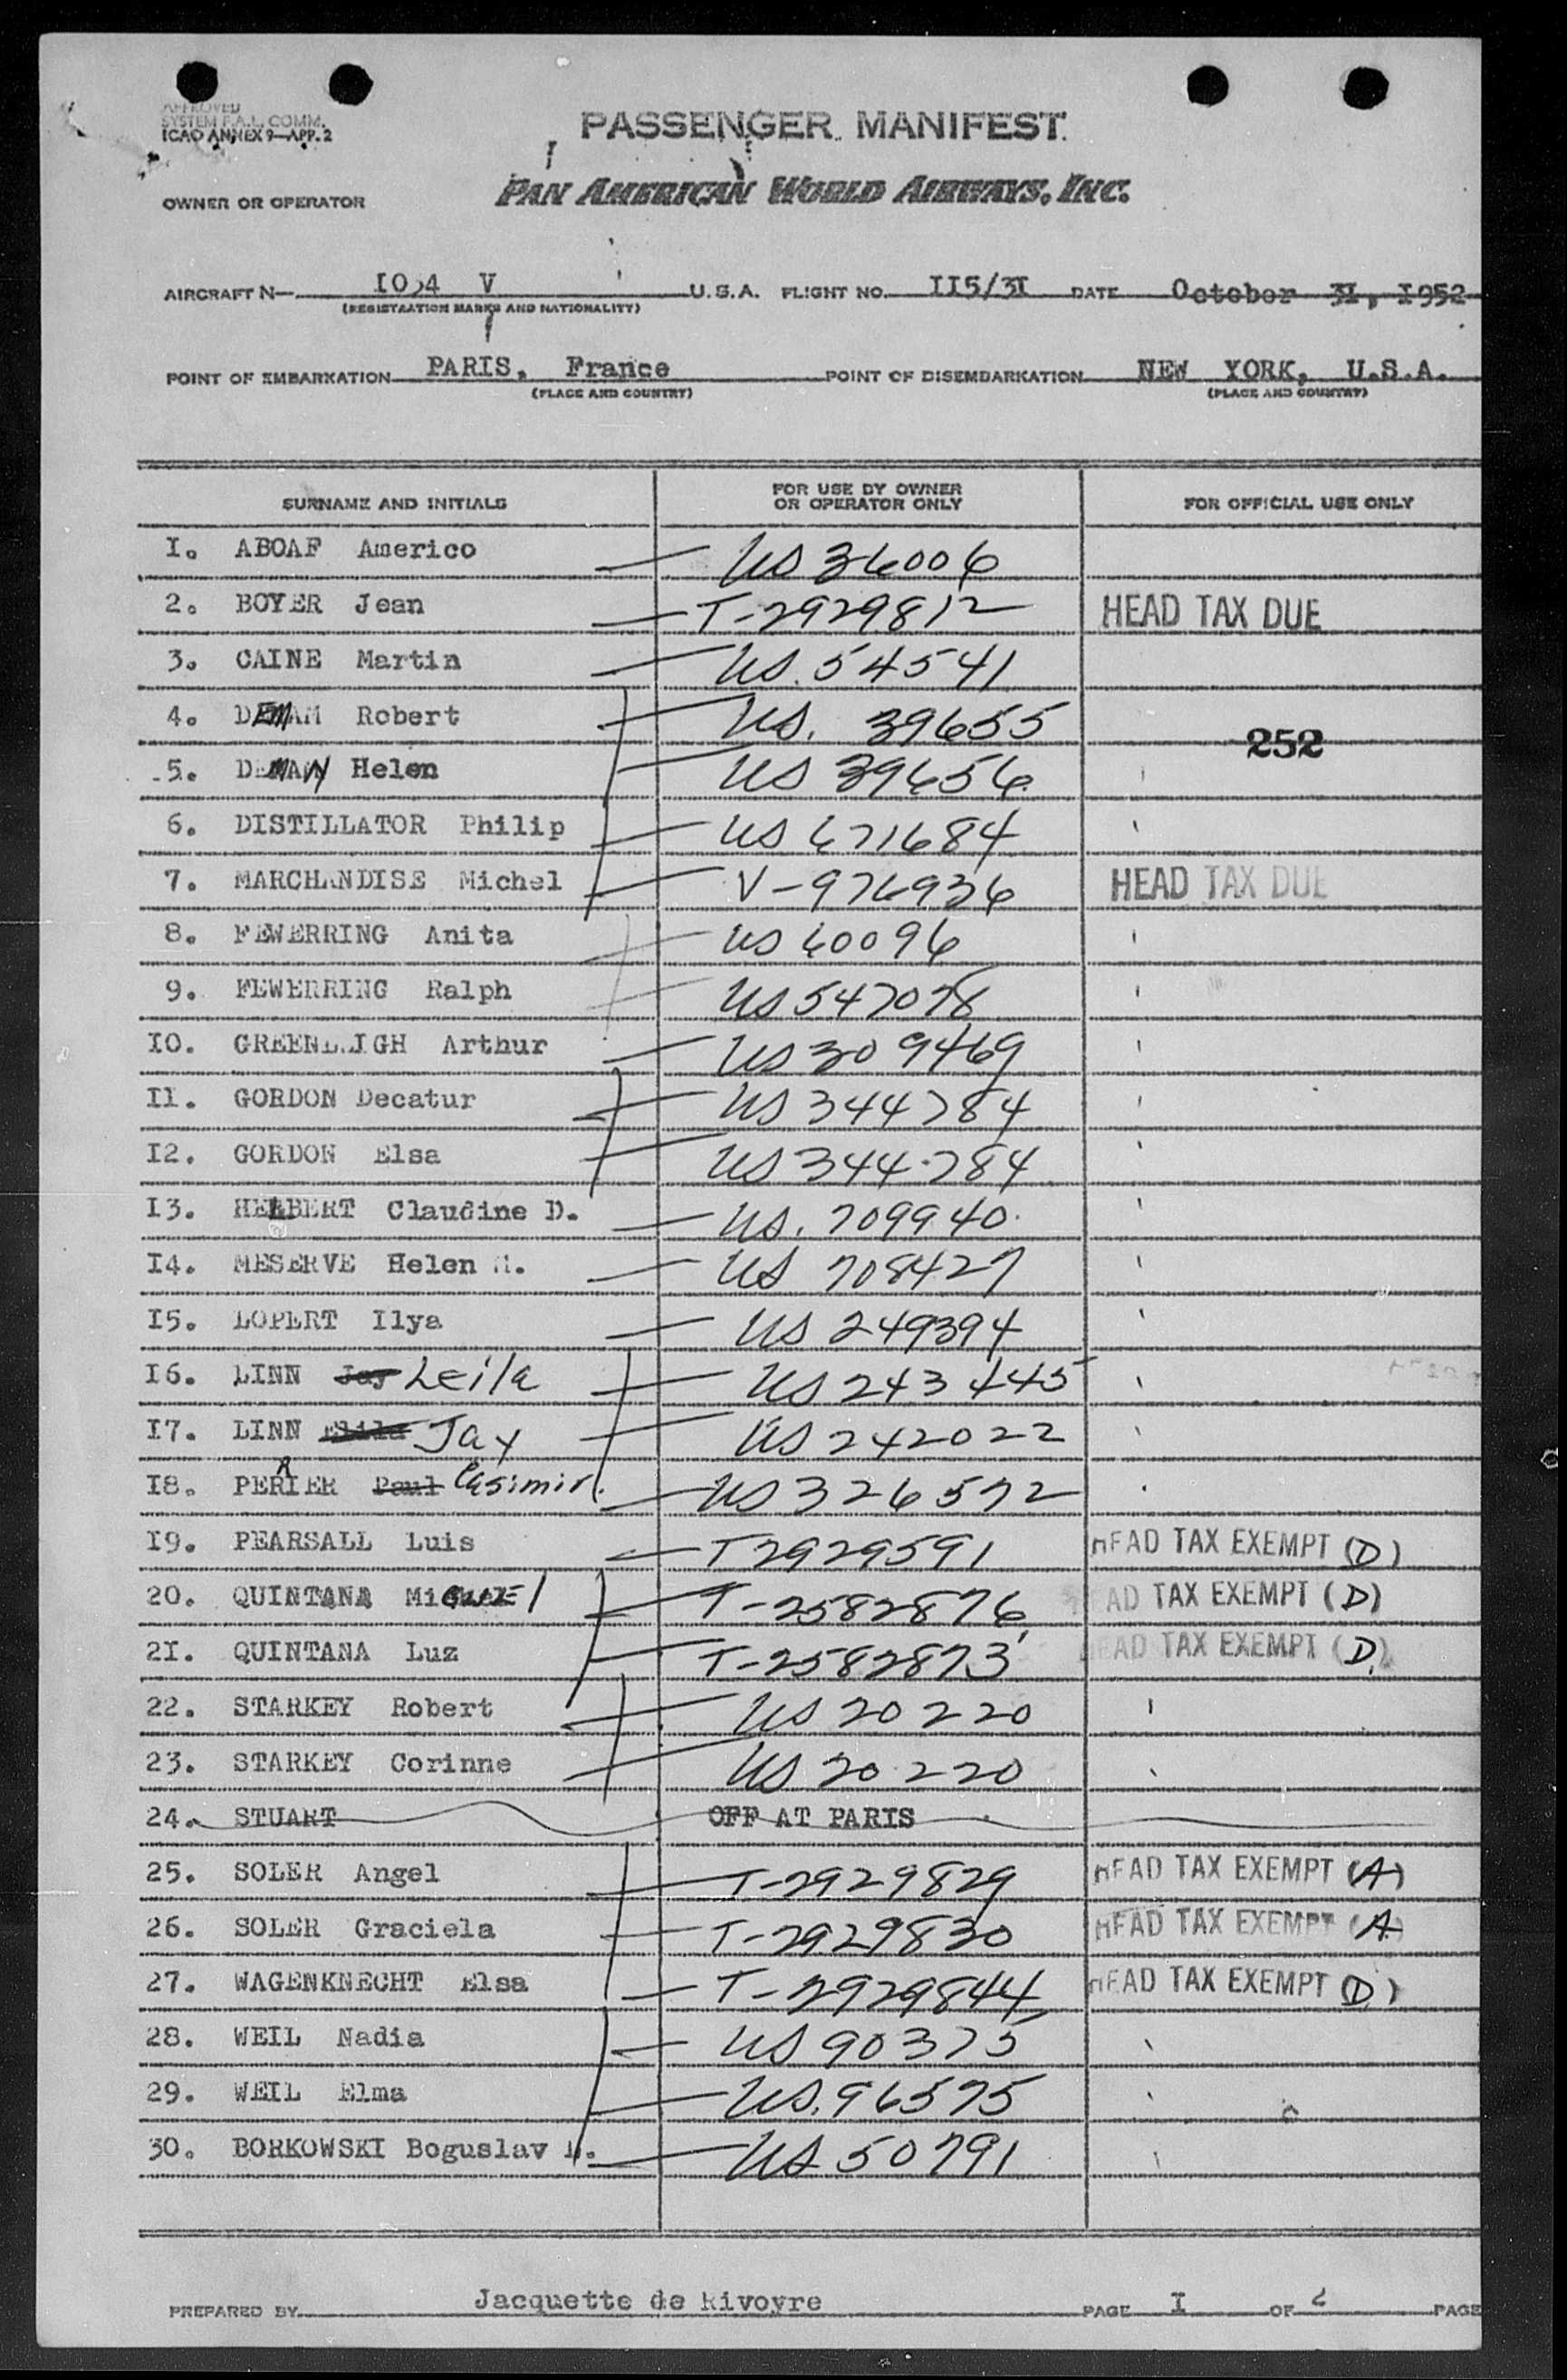 APPROVED
SYSTEM F.A.L. COMM.
ICAO ANNEX 9—APP. 2
PASSENGER MANIFEST
OWNER OR OPERATOR PAN AMERICAN WORLD AIRWAYS, INC.
AIRCRAFT N— 1034 V U.S.A. FLIGHT NO. II5/3I DATE October 3I, I952
(REGISTRATION MARKS AND NATIONALITY)
POINT OF EMBARKATION PARIS, France POINT OF DISEMBARKATION NEW YORK, U.S.A.
(PLACE AND COUNTRY) (PLACE AND COUNTRY)
SURNAME AND INITIALS FOR USE BY OWNER OR OPERATOR ONLY FOR OFFICIAL USE ONLY
I. ABOAF Americo US 36006
2. BOYER Jean T-2929812 HEAD TAX DUE
3. CAINE Martin US. 54541
4. DEMAM Robert US. 39655
252
5. DEMAN Helen US 39656
6. DISTILLATOR Philip US 671684
7. MARCHANDISE Michel V-976936 HEAD TAX DUE
8. FEWERRING Anita US 60096
9. FEWERRING Ralph US 547078
IO. GREENLEIGH Arthur US 309469
II. GORDON Decatur US 344784
I2. GORDON Elsa US 344784
I3. HERBERT Claudine D. US. 709940
I4. MESERVE Helen US 708427
I5. LOPERT Ilya US 249394
I6. LINN Jay Leila US 243445
I7. LINN Jay US 242022
I8. PERRIER Paul Casimir. US 326572
I9. PEARSALL Luis T2929591 HEAD TAX EXEMPT (D)
20. QUINTANA MiGUEl T-2582876 HEAD TAX EXEMPT (D)
2I. QUINTANA Luz T-2582873 HEAD TAX EXEMPT (D)
22. STARKEY Robert US 20220
23. STARKEY Corinne US 20220
24. STUART OFF AT PARIS
25. SOLER Angel T-2929829 HEAD TAX EXEMPT (A)
26. SOLER Graciela T-2929830 HEAD TAX EXEMPT (A)
27. WAGENKNECHT Elsa T-2929844 HEAD TAX EXEMPT (D)
28. WEIL Nadia US 90375
29. WEIL Elma US. 96575
30. BORKOWSKI Boguslav US 50791
PREPARED BY Jacquette de Rivoyre PAGE I OF 2 PAGE